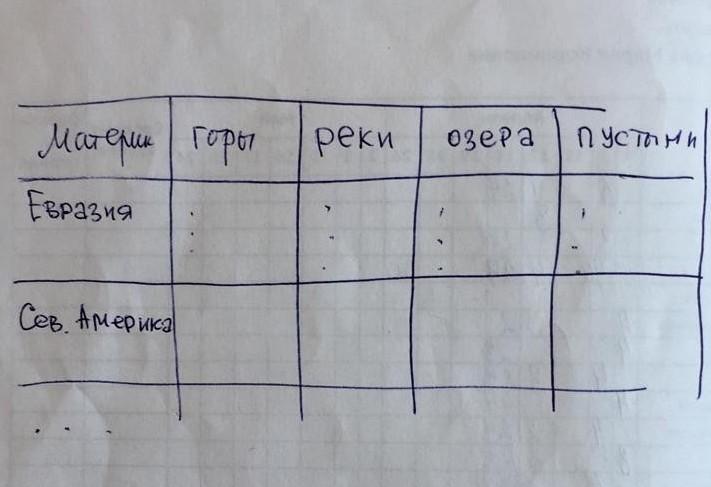 Материк горы реки озера пустыни
Евразия
Сев. Америка
. . .